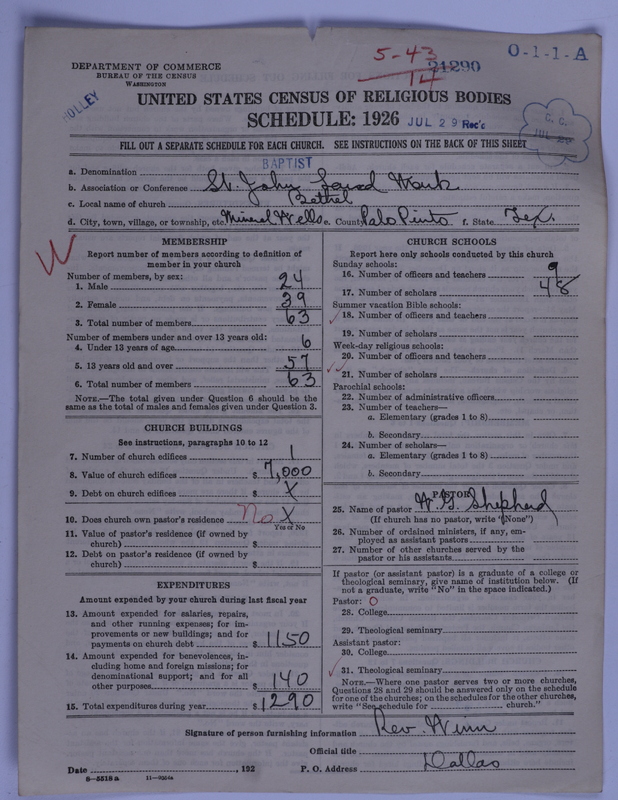 5-43
14
21290
O-1-1-A
DEPARTMENT OF COMMERCE
BUREAU OF THE CENSUS
WASHINGTON
HOLLEY
UNITED STATES CENSUS OF RELIGIOUS BODIES
SCHEDULE: 1926
JUL 29 Rec'd
C. C.
FILL OUT A SEPARATE SCHEDULE FOR EACH CHURCH. SEE INSTRUCTIONS ON THE BACK OF THIS SHEET
a. Denomination BAPTIST
b. Association or Conference St. John
c. Local name of church Bethel
d. City, town, village, or township, etc. Mineral Wells e. County Palo Pinto f. State Tex.
MEMBERSHIP
Report number of members according to definition of
member in your church
Number of members, by sex:
1. Male 24
2. Female 39
3. Total number of members 63
Number of members under and over 13 years old:
4. Under 13 years of age 6
5. 13 years old and over 57
6. Total number of members 63
NOTE.—The total given under Question 6 should be the
same as the total of males and females given under Question 3.
CHURCH BUILDINGS
See instructions, paragraphs 10 to 12
7. Number of church edifices 1
8. Value of church edifices $ 7,000
9. Debt on church edifices $ X
10. Does church own pastor's residence No X
Yes or No
11. Value of pastor's residence (if owned by
church) $
12. Debt on pastor's residence (if owned by
church) $
EXPENDITURES
Amount expended by your church during last fiscal year
13. Amount expended for salaries, repairs,
and other running expenses; for im-
provements or new buildings; and for
payments on church debt $ 1150
14. Amount expended for benevolences, in-
cluding home and foreign missions; for
denominational support; and for all
other purposes $ 140
15. Total expenditures during year $ 1290
CHURCH SCHOOLS
Report here only schools conducted by this church
Sunday schools:
16. Number of officers and teachers 9
17. Number of scholars 48
Summer vacation Bible schools:
18. Number of officers and teachers
19. Number of scholars
Week-day religious schools:
20. Number of officers and teachers
21. Number of scholars
Parochial schools:
22. Number of administrative officers
23. Number of teachers—
a. Elementary (grades 1 to 8)
b. Secondary
24. Number of scholars—
a. Elementary (grades 1 to 8)
b. Secondary
PASTOR
25. Name of pastor W. G. Shepherd
(If church has no pastor, write "None")
26. Number of ordained ministers, if any, em-
ployed as assistant pastors
27. Number of other churches served by the
pastor or his assistants
If pastor (or assistant pastor) is a graduate of a college or
theological seminary, give name of institution below. (If
not a graduate, write "No" in the space indicated.)
Pastor: O
28. College
29. Theological seminary
Assistant pastor:
30. College
31. Theological seminary
NOTE.—Where one pastor serves two or more churches,
Questions 28 and 29 should be answered only on the schedule
for one of the churches; on the schedules for the other churches,
write "See schedule for church."
Signature of person furnishing information Rev. Winn
Official title
Date , 192 P. O. Address Dallas
8-5518 a